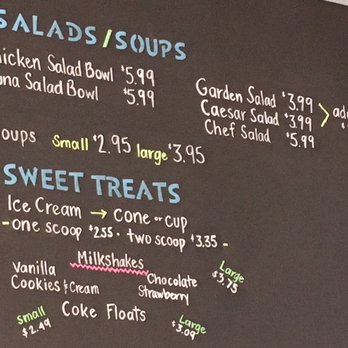 SALADS/SOUPS
hicken Salad Bowl $5.99
una Salad Bowl $5.99
Garden Salad $3.99
Caesar Salad $3.99
Chef Salad $5.99
add
oups small $2.95 large $3.95
SWEET TREATS
Ice Cream → CONE or CUP
- one scoop $2.55 - two scoop $3.35 -
Milkshakes
Vanilla Chocolate
Cookies & Cream Strawberry
Large $3.75
Small $2.49 Coke Floats Large $3.09